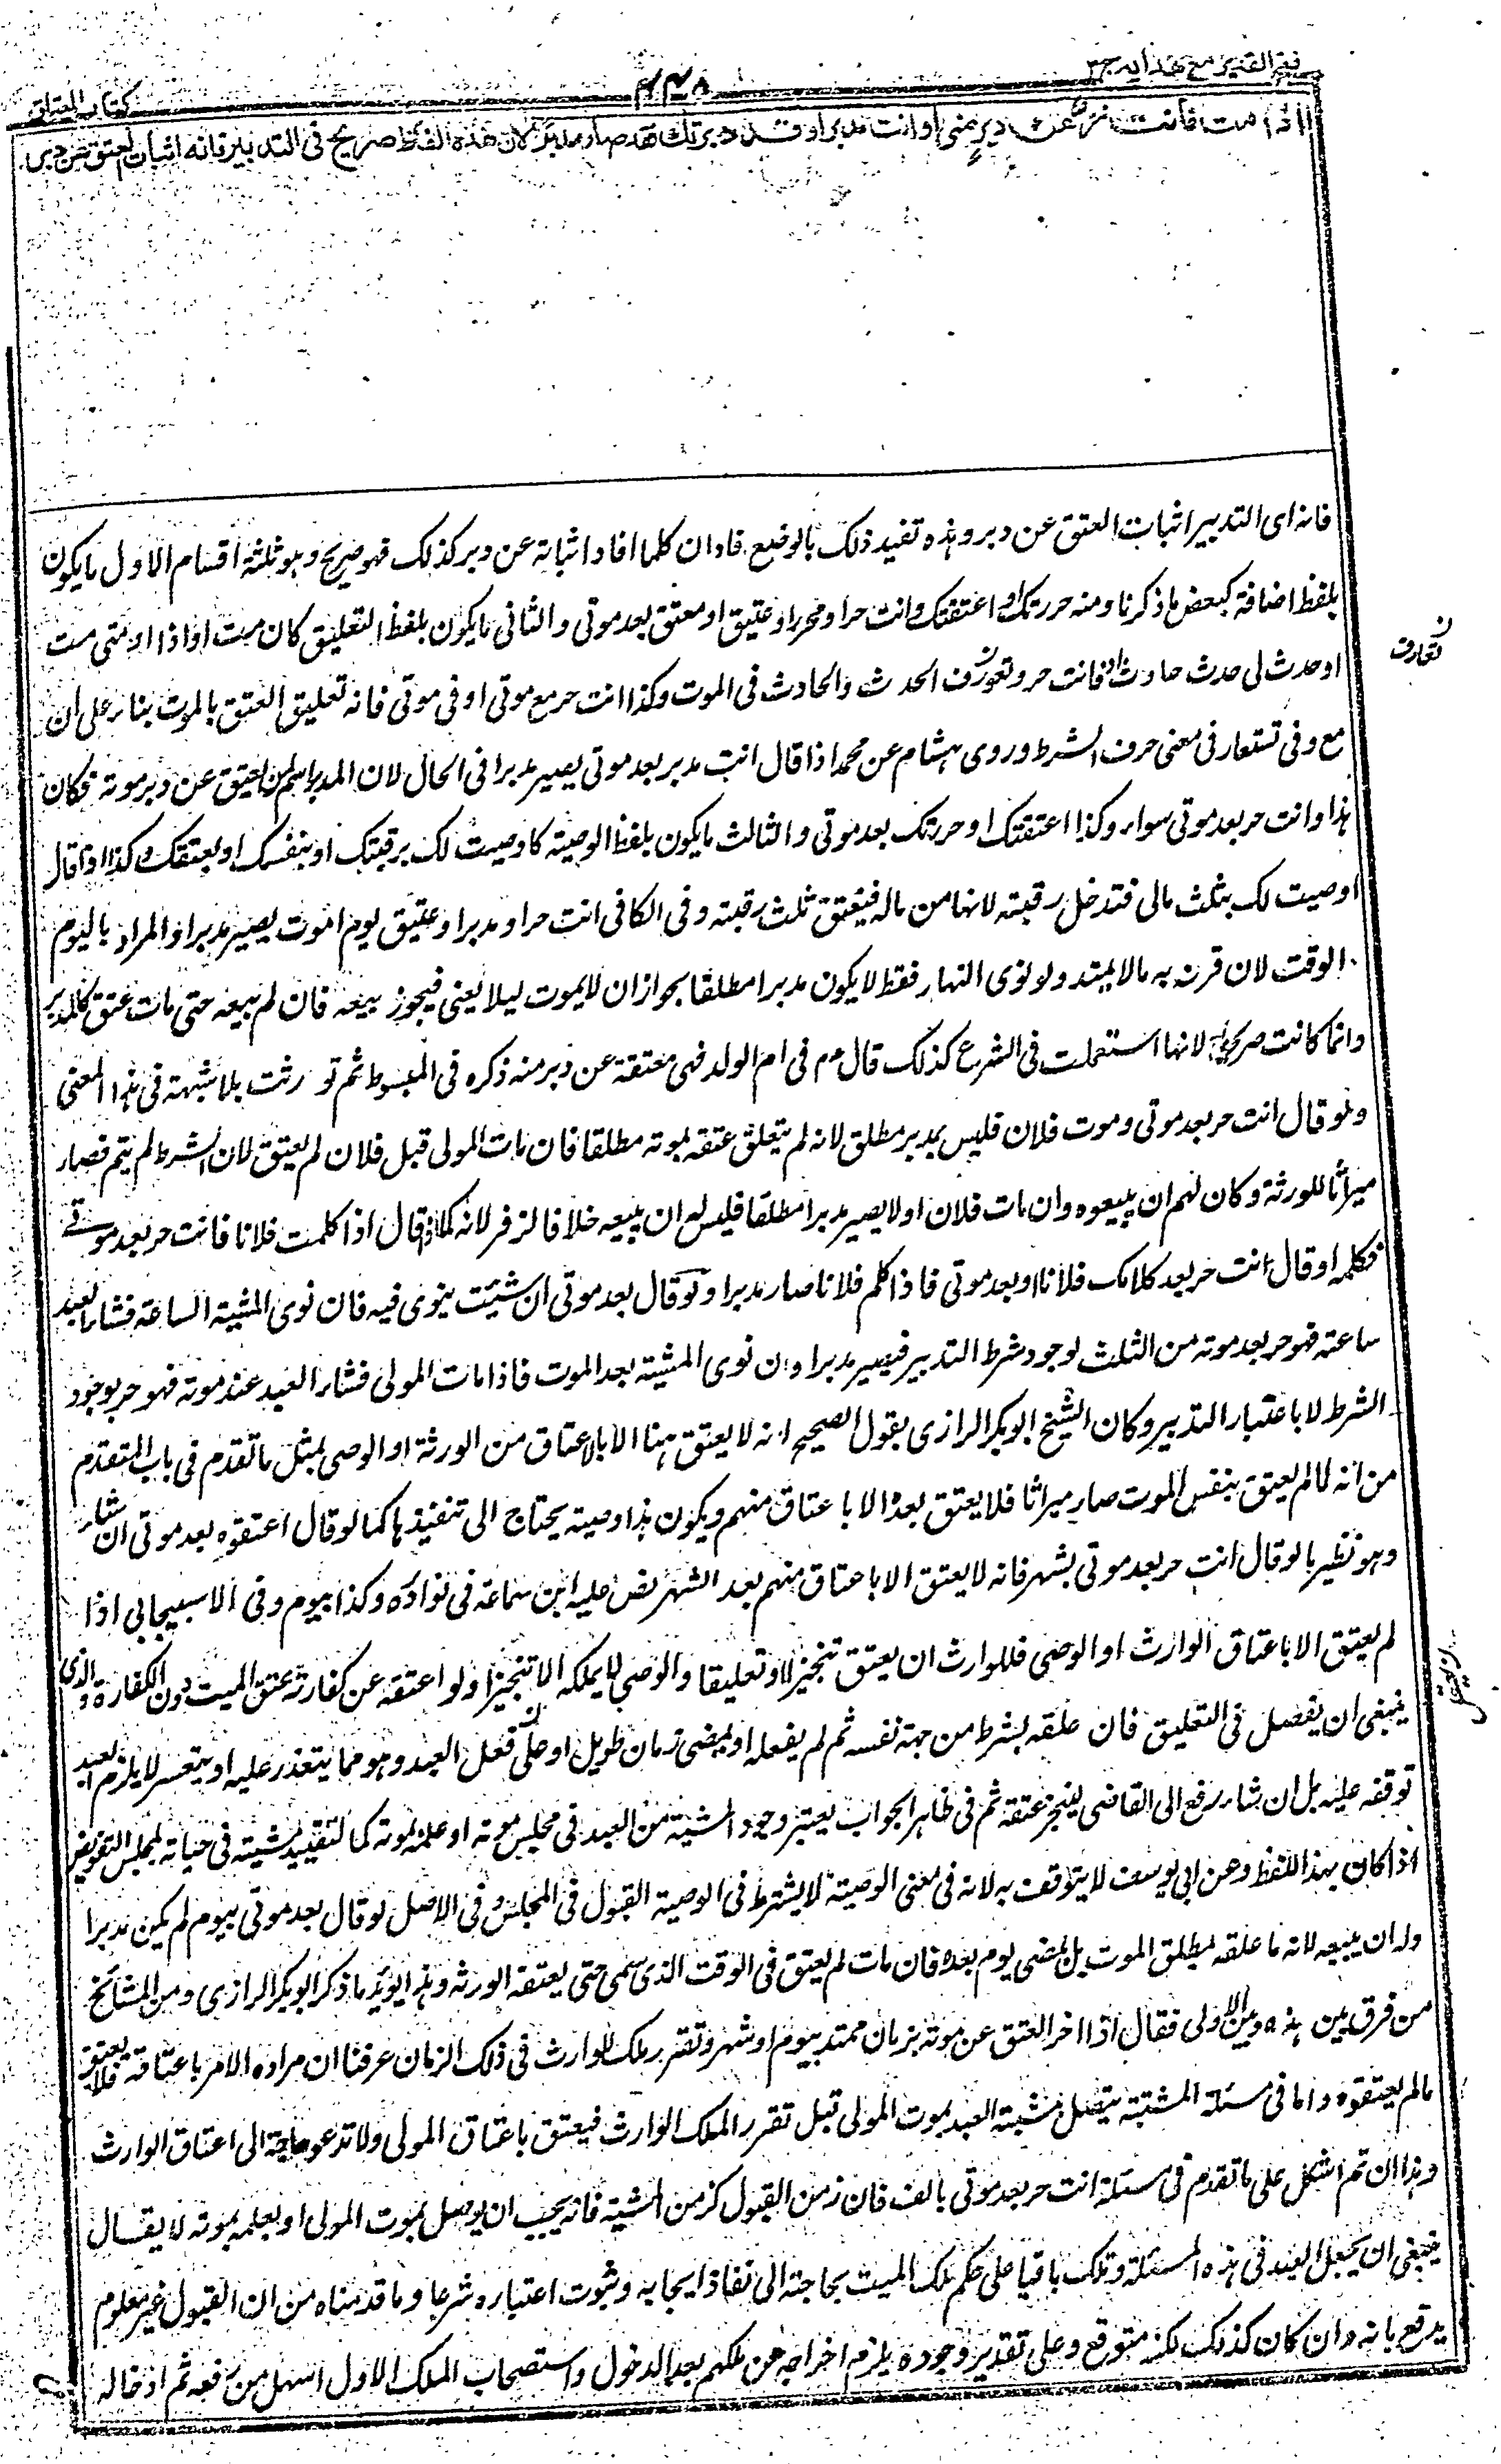 فتح القدير مع هداية ج ٢
٤٣٨
كتاب العتاق
اذا مت فانت حر عن دبر مني او انت مدبر او قد دبرتك فقد صار مدبرا لان هذه الفاظ صريح في التدبير فانه اثبات العتق عن دبر
فانه اى التدبير اثبات العتق عن دبر وهذه تفيد ذلك بالوضع فادان كلما افاد اثباته عن دبر كذلك فهو صريح وهو ثلثة اقسام الاول ما يكون
بلفظ اضافة كبعض ما ذكرنا ومنه حررتك او اعتقتك وانت حر او محرر او عتيق او معتق بعد موتى والثانى ما يكون بلفظ التعليق كان مت او اذا او متى مت
او حدث لى حدث حادث فانت حر وتعورف الحدث والحادث فى الموت وكذا انت حر مع موتى او فى موتى فانه تعليق العتق بالموت بناء على ان
تعارف
مع وفى تستعار فى معنى حرف الشرط وروى هشام عن محمد اذا قال انت مدبر بعد موتى يصير مدبرا فى الحال لان المدبر اسم لمن يعتق عن دبر موته فكان
هذا وانت حر بعد موتى سواء وكذا اعتقتك او حررتك بعد موتى والثالث ما يكون بلفظ الوصية كاوصيت لك برقبتك او بنفسك او بعتقك وكذا اذا قال
اوصيت لك بثلث مالى فتدخل رقبته لانها من ماله فيعتق ثلث رقبته وفى الكافى انت حر او مدبر او عتيق يوم اموت يصير مدبرا والمراد باليوم
الوقت لان قرن به ما لا يمتد ولو نوى النهار فقط لا يكون مدبرا مطلقا بجواز ان لا يموت ليلا يعنى فيجوز بيعه فان لم يبعه حتى مات عتق كالمدبر
وانما كانت صريحة لانها استعملت فى الشرع كذلك قال عم فى ام الولد فهى معتقة عن دبر منه ذكره فى المبسوط ثم تورثت بلا شبهة فى هذا المعنى
ولو قال انت حر بعد موتى وموت فلان فليس بمدبر مطلق لانه لم يتعلق عتقه بموته مطلقا فان مات المولى قبل فلان لم يعتق لان الشرط لم يتم فصار
ميراثا للورثة وكان لهم ان يبيعوه وان مات فلان اولا يصير مدبرا مطلقا فليس له ان يبيعه خلافا لزفر لانه كما اذا قال اذا كلمت فلانا فانت حر بعد موتى
فكلمه او قال انت حر بعد كلامك فلانا او بعد موتى فاذا كلم فلانا صار مدبرا ولو قال بعد موتى ان شئت ينوى فيه فان نوى المشية الساعة فشاء العبد
ساعته فهو حر بعد موته من الثلث لوجود شرط التدبير فيصير مدبرا وان نوى المشية بعد الموت فاذا مات المولى فشاء العبد عند موته فهو حر بوجود
الشرط لا باعتبار التدبير وكان الشيخ ابو بكر الرازى يقول الصحيح انه لا يعتق ههنا الا بالاعتاق من الورثة او الوصى بمثل ما تقدم فى باب المتقدم
من انه لما لم يعتق بنفس الموت صار ميراثا فلا يعتق بعده الا باعتاق منهم ويكون هذا وصية يحتاج الى تنفيذها كما لو قال اعتقوه بعد موتى ان شاء
وهو نظير ما لو قال انت حر بعد موتى بشهر فانه لا يعتق الا باعتاق منهم بعد الشهر نص عليه ابن سماعة فى نوادره وكذا بيوم وفى الاسبيجابى اذا
لم يعتق الا باعتاق الوارث او الوصى فللوارث ان يعتق تنجيزا او تعليقا والوصى لا يملكه الا تنجيزا ولو اعتقه عن كفارته عتق عن الميت دون الكفارة والذى
ينبغى ان يفصل فى التعليق فان علقه بشرط من جهة نفسه ثم لم يفعله او بمضى زمان طويل او على فعل العبد وهو مما يتعذر عليه او يتعسر لا يلزم العبد
توقفه عليه بل ان شاء رفع الى القاضى لينجز عتقه ثم فى ظاهر الجواب يعتبر وجود المشية من العبد فى مجلس موته او علمه بموته كما لتقييد المشية فى حياته لمجلس التفويض
اذا كان بهذا اللفظ وعن ابى يوسف لا يتوقف به لانه فى معنى الوصية لا يشترط فى الوصية القبول فى المجلس وفى الاصل لو قال بعد موتى بيوم لم يكن مدبرا
وله ان يبيعه لانه ما علقه بمطلق الموت بل بمضى يوم بعده فان مات لم يعتق فى الوقت الذى سمى حتى يعتقه الورثة وهذا يؤيد ما ذكر ابو بكر الرازى ومن المشائخ
من فرق بين هذه وبين الاولى فقال اذا اخر العتق عن موته بزمان ممتد بيوم او شهر وتقرر ملك الوارث فى ذلك الزمان عرفنا ان مراده الامر باعتاقه فلا يعتق
مالم يعتقوه واما فى مسئلة المشية يتصل مشية العبد بموت المولى قبل تقرر الملك للوارث فيعتق باعتاق المولى ولا تدعو حاجة الى اعتاق الوارث
وهذا ان تم اشكل على ما تقدم فى مسئلة انت حر بعد موتى بالف فان زمن القبول كزمن المشية فانه يجب ان يوصل بموت المولى او بعلمه بموته لا يقال
ينبغى ان يجعل العبد فى هذه المسئلة وتلك باقيا على حكم ملك الميت بحاجته الى نفاذ ايجابه وثبوت اعتباره شرعا وما قدمناه من ان القبول غير معلوم
يدفع بانه وان كان كذلك لكنه متوقع وعلى تقدير وجوده يلزم اخراجه عن ملكهم بعد الدخول واستصحاب الملك الاول اسهل من رفعه ثم ادخاله